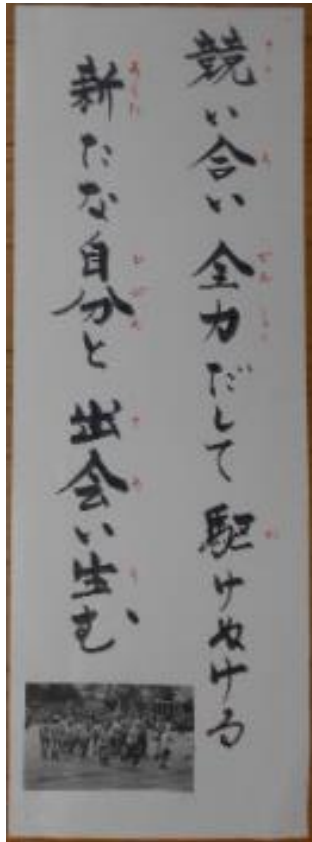 競い合い 全力だして 駆けぬける
新たな自分と 出会い生む